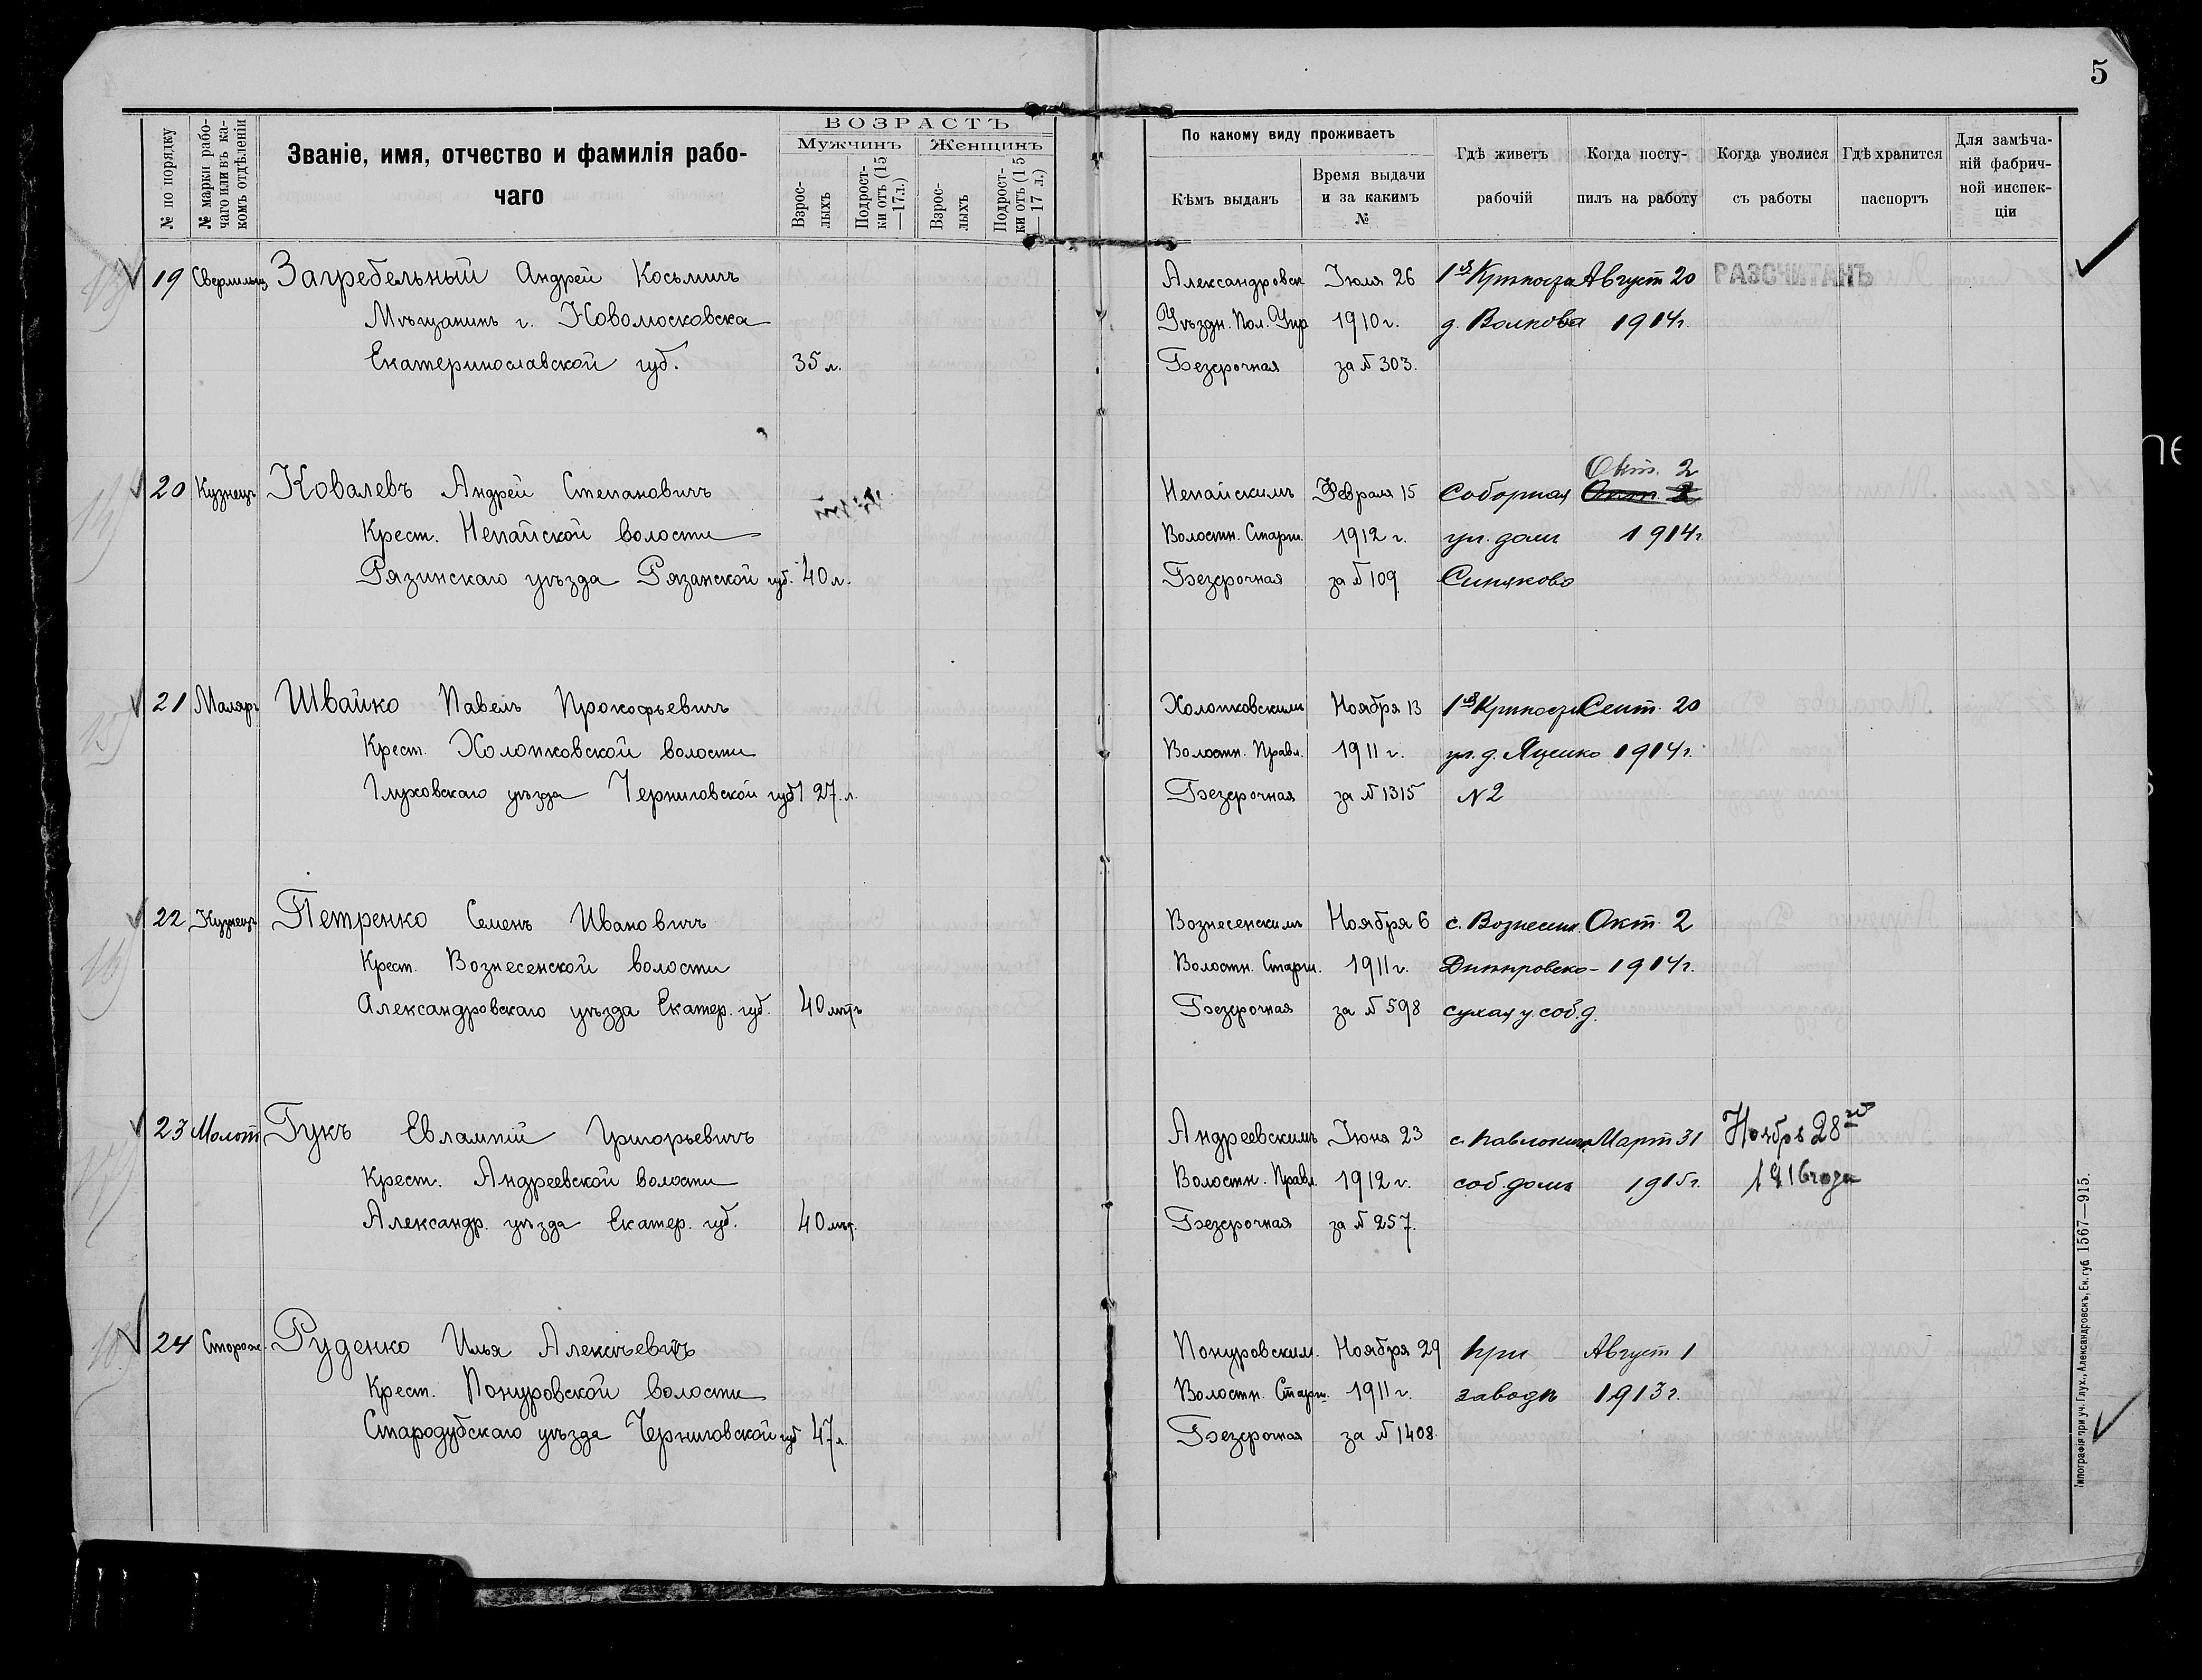 5
№ по порядку
№ марки рабо-
чаго или въ ка-
комъ отдѣленіи
Званіе, имя, отчество и фамилія рабо-
чаго
ВОЗРАСТЪ
Мужчинъ
Женщинъ
Взрос-
лыхъ
Подрост-
ки отъ (15
—17л.)
Взрос-
лыхъ
Подрост-
ки отъ (15
—17 л.)
По какому виду проживаетъ
Кѣмъ выданъ
Время выдачи
и за какимъ
№
Гдѣ живетъ
рабочій
Когда посту-
пилъ на работу
Когда уволися
съ работы
Гдѣ хранится
паспортъ
Для замѣча-
ній фабрич-
ной инспек-
ціи
19 Сверлильщ. Загребельный Андрей Косьмичъ
Мѣщанинъ г. Новомосковска
Екатеринославской губ. 35 л.
Александровск Іюля 26 Август 20 РАЗСЧИТАНЪ
Уѣздн. Пол. Упр 1910 г. д. Волкова 1914г.
Безсрочная за № 303.
20 Кузнецъ Ковалевъ Андрей Степановичъ
Крест. Непайской волости
Рязинскаго уѣзда Рязанской губ. 40 л.
Окт. 2
Непайскимъ Февраля 15 Соборная Окт. 2
Волостн. Старш. 1912 г. ул. домъ 1914г
Безсрочная за № 109 Синяково
21 Маляръ Швайко Павелъ Прокофьевичъ
Крест. Холопковской волости
Глуховскаго уѣзда Черниговской губ 27. л.
Холопковскимъ Ноября 13 Сент. 20
Волостн. Правл. 1911 г. ул. д. Яценко 1914г.
Безсрочная за № 1315 N 2
22 Кузнецъ Петренко Семенъ Ивановичъ
Крест. Вознесенской волости
Александровскаго уѣзда Екатер. губ. 40 лѣтъ
Вознесенскимъ Ноября 6 с. Вознесен. Окт. 2
Волостн. Старш. 1911 г. Днѣпровско- 1914г.
Безсрочная за № 598 сухая у. соб. д.
23 Молот. Гукъ Евлампій Григорьевичъ
Крест. Андреевской волости
Александр. уѣзда Екатер. губ. 40 лѣт.
Андреевскимъ Іюня 23 Март 31 Ноябрь 28го
Волостн. Правл. 1912 г. соб. домъ 1915г. 1916 года
Безсрочная за № 257.
24 Сторож. Руденко Илья Алексѣевичъ
Крест. Понуровской волости
Стародубскаго уѣзда Черниговской губ 47 л.
Понуровским. Ноября 29 при Август 1
Волостн. Старш. 1911 г. заводѣ 1913г.
Безсрочная за № 1408.
Типографія при уч. Глух., Александровскъ, Ек. губ 1567—915.